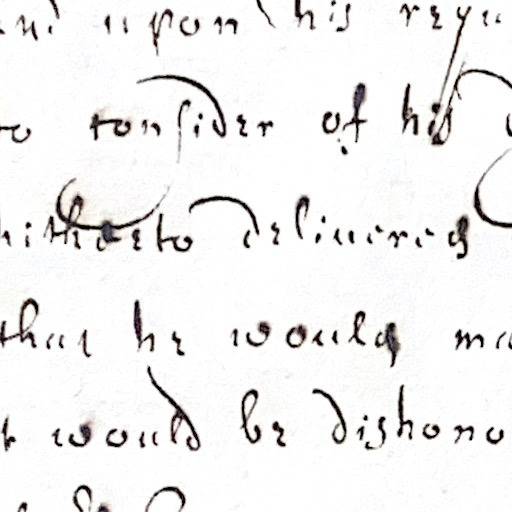 upon his requ
to consider of his
hitherto delivered
that he would ma
t would be dishono